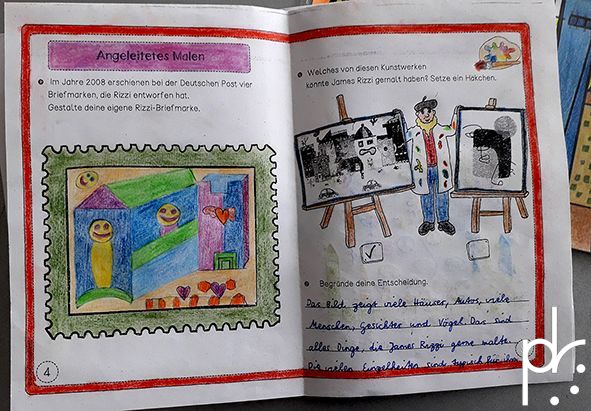 Angeleitetes Malen
Im Jahre 2008 erschienen bei der Deutschen Post vier
Briefmarken, die Rizzi entworfen hat.
Gestalte deine eigene Rizzi-Briefmarke.
4
Welches von diesen Kunstwerken
könnte James Rizzi gemalt haben? Setze ein Häkchen.
Begründe deine Entscheidung.
Das Bild zeigt viele Häuser, Autos, viele
Menschen, Gesichter und Vögel. Das sind
alles Dinge, die James Rizzi gerne malte.
Die vielen Einzelheiten sind typisch für ihn
ph.